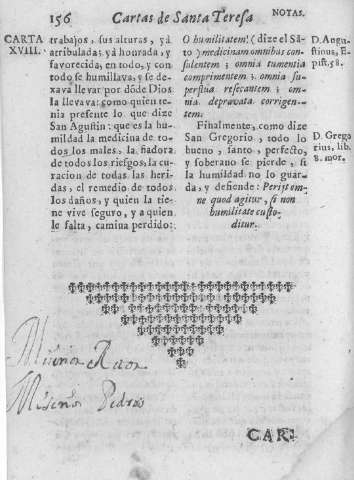 156 Cartas de Santa Teresa NOTAS.
CARTA
XVIII.
trabajos, sus alturas, yá
atribulada; yá honrada, y
favorecida, en todo, y con
todo se humillava, y se de-
xava llevar por dóde Dios
la llevava: como quien te-
nia presente lo que dize
San Agustin: que es la hu-
mildad la medicina de to-
dos los males, la sanadora
de todos los riesgos, la cu-
racion de todas las heri-
das, el remedio de todos
los daños, y quien la tie-
ne vive seguro, y a quien
le falta, camina perdido:
O humilitatem! (dize el Sã-
to) medicinam omnibus con-
sulentem; omnia tumentia
comprimentem: omnia su-
perflua resecantem; om-
nia depravata corrigen-
tem.
Finalmente, como dize
San Gregorio, todo lo
bueno, santo, perfecto,
y soberano se pierde, si
la humildad no lo guar-
da, y defiende: Perijt om-
ne quod agitur, si non
humilitate custo-
ditur.
D. Augus-
tinus, E-
pist. 58.
D. Grego-
rius, lib.
8. mor.
Miseñor
Miseñor Pedro
CAR-